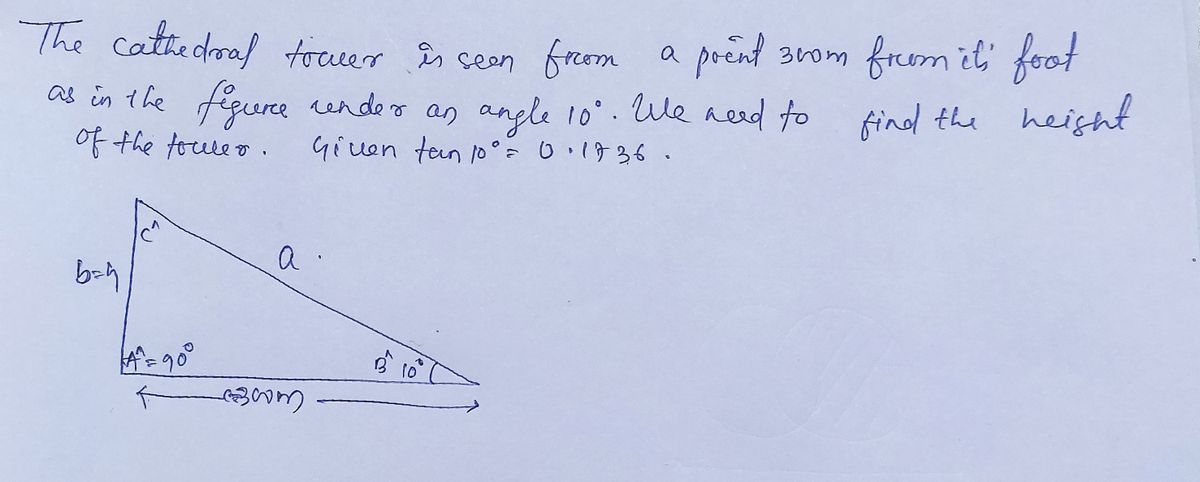 The cathedral tower is seen from a point 300m from it's foot
as in the figure under an angle 10°. We need to find the height
of the tower. Given tan 10° = 0.1736.
C^
a.
b=h
A^=90°
B^ 10°
c=300m